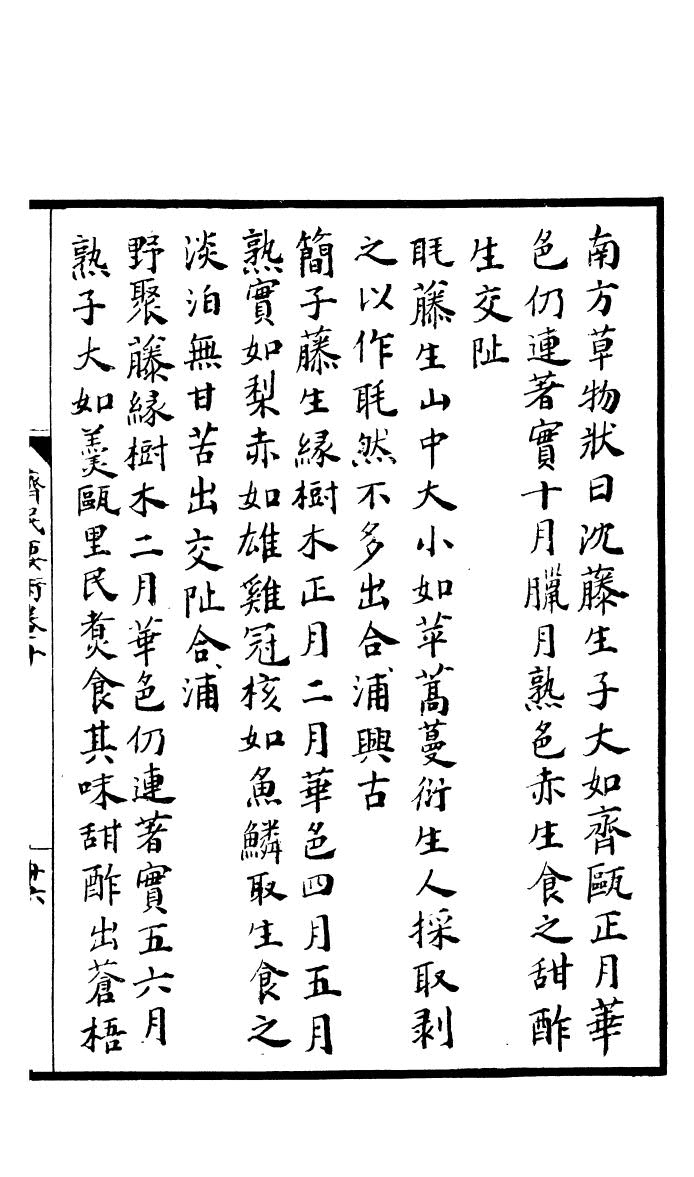 南方草物狀曰沈藤生子大如齊甌正月華
色仍連著實十月臘月熟色赤生食之甜酢
生交阯
毦藤生山中大小如苹蒿蔓衍生人採取剥
之以作毦然不多出合浦興古
簡子藤生縁樹木正月二月華色四月五月
熟實如梨赤如雄雞冠核如魚鱗取生食之
淡泊無甘苦出交阯合浦
野聚藤縁樹木二月華色仍連著實五六月
熟子大如羹甌里民煑食其味甜酢出蒼梧
齊民要術卷十
卅六